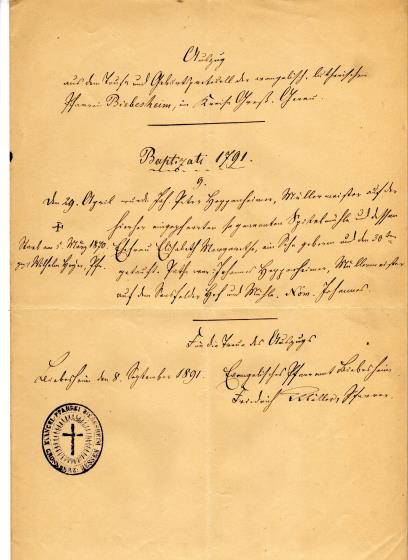 Auszug
aus dem Taufe und Geburtsprotocoll der evangelisch-lutherischen
Pfarrei Biebesheim, im Kreise Groß-Gerau.
Baptizati 1791.
9.
Den 29. April wurde Joh. Peter Heppenheimer, Müllermeister auf der
hierher eingepfarrten sogenannten Spitalmühle und dessen
Ehefrau Elisabeth Margaretha, ein Sohn geboren und den 30ten
getauft. Path war Johannes Heppenheimer, Müllermeister
auf dem Sensfelder Hof und Mühle. Nom. Johannes.
starb am 5. März 1870.
Wilhelm Pfr.
Für die Treue des Auszugs
Biebesheim den 8. September 1891.
Evangelisches Pfarramt Biebesheim
Friedrich Müller, Pfarrer
EVANGEL. PFARREI BIEBESHEIM